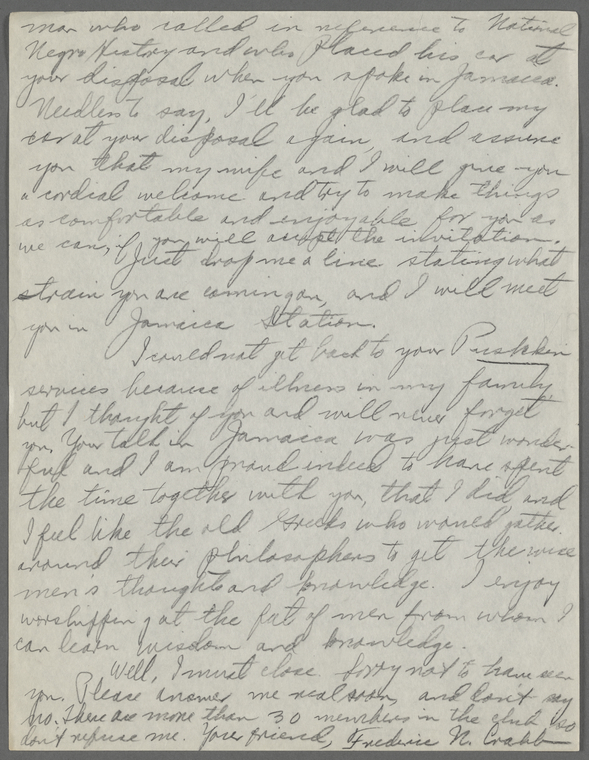 man who called in reference to National
Negro History and who placed his car at
your disposal when you spoke in Jamaica.
Needless to say, I'll be glad to place my
car at your disposal again, and assure
you that my wife and I will give you
a cordial welcome and try to make things
as comfortable and enjoyable for you as
we can, if you will accept the invitation.
Just drop me a line stating what
train you are coming on, and I will meet
you in Jamaica Station.
I could not get back to your Pushkin
services because of illness in my family,
but I thought of you and will never forget
you. Your talk in Jamaica was just wonder-
ful and I am proud indeed to have spent
the time together with you, that I did and
I feel like the old Greeks who would gather
around their philosophers to get the wise
men's thoughts and knowledge. I enjoy
worshipping at the feet of men from whom I
can learn wisdom and knowledge.
Well, I must close. Sorry not to have seen
you. Please answer me real soon, and don't say
no. There are more than 30 members in the club so
don't refuse me. Your friend, Frederic N. Crabb